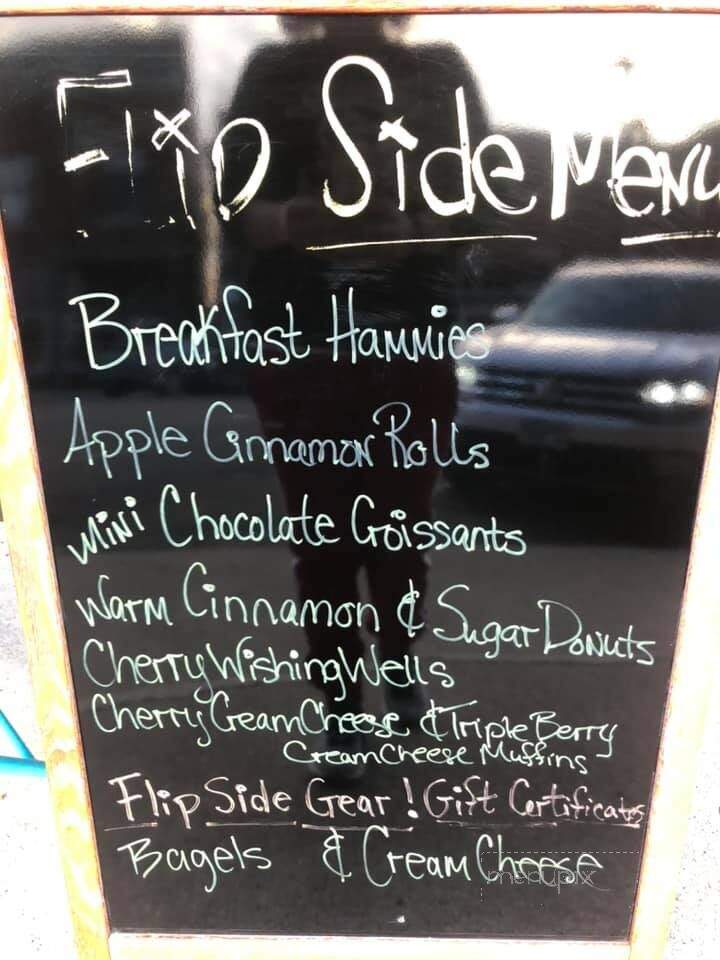 Flip Side Menu
Breakfast Hammies
Apple Cinnamon Rolls
Mini Chocolate Croissants
Warm Cinnamon & Sugar Donuts
Cherry Wishing Wells
Cherry Cream Cheese & Triple Berry
Cream Cheese Muffins
Flip Side Gear! Gift Certificates
Bagels & Cream Cheese
menupix